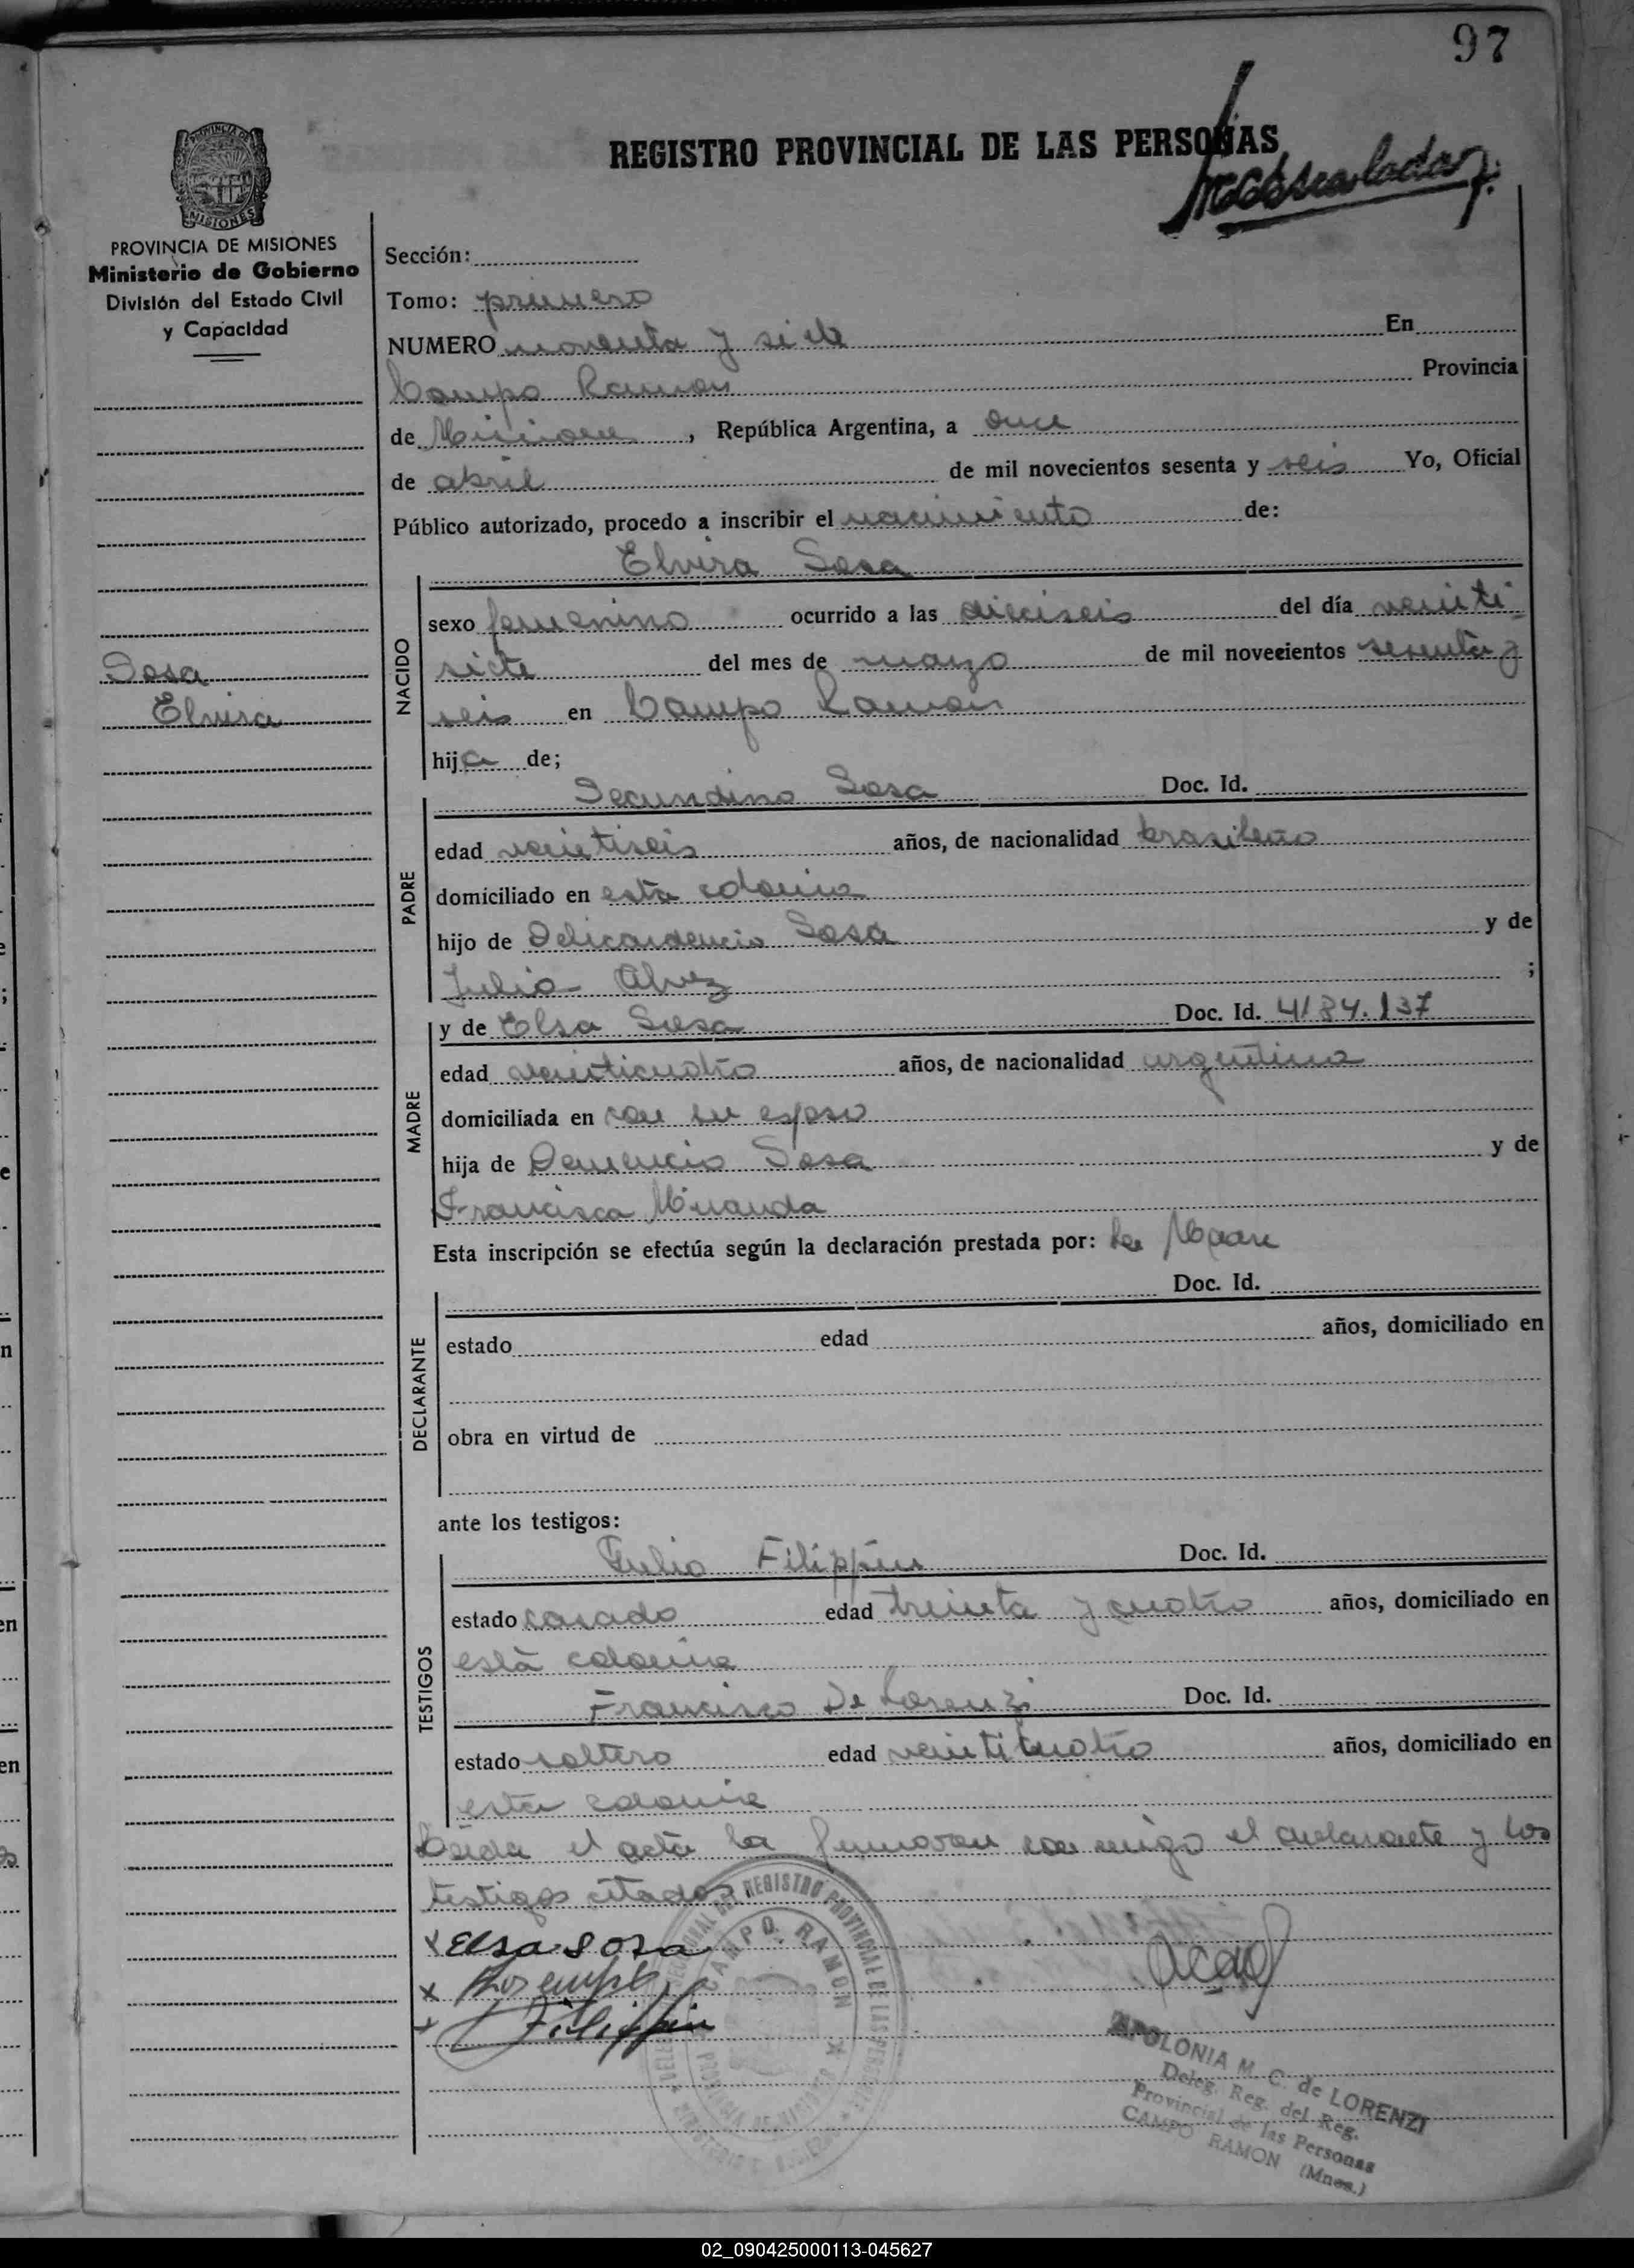 97
REGISTRO PROVINCIAL DE LAS PERSONAS
PROVINCIA DE MISIONES
Ministerio de Gobierno
División del Estado Civil
y Capacidad
Sección:
Tomo: primero
NUMERO noventa y siete En
Campo Ramon Provincia
de Misiones, República Argentina, a once
de abril de mil novecientos sesenta y seis Yo, Oficial
Público autorizado, procedo a inscribir el nacimiento de:
Elvira Sosa
NACIDO
sexo femenino ocurrido a las dieciseis del día veinti
siete del mes de marzo de mil novecientos sesenta y
seis en Campo Ramon
hija de;
Sosa
Elvira
PADRE
Secundino Sosa Doc. Id.
edad veintiseis años, de nacionalidad brasileño
domiciliado en esta colonia
hijo de Sosa y de
Julia Alvez ;
MADRE
y de Elsa Sosa Doc. Id. 4184.137
edad veinticuatro años, de nacionalidad argentina
domiciliada en con su esposo
hija de Sosa y de
Francisca Miranda
Esta inscripción se efectúa según la declaración prestada por: la Madre
DECLARANTE
Doc. Id.
estado edad años, domiciliado en
obra en virtud de
ante los testigos:
TESTIGOS
Julio Filippin Doc. Id.
estado casado edad treinta y cuatro años, domiciliado en
esta colonia
Francisco De Lorenzi Doc. Id.
estado soltero edad veinticuatro años, domiciliado en
esta colonia
Leida el acta la firmaron conmigo el declarante y los
testigos citados.
x Elsa Sosa
x
Filippin
REGISTRO PROVINCIAL DE LAS PERSONAS
CAMPO RAMON
PROVINCIA DE MISIONES
APOLONIA M. C. de LORENZI
Deleg. Reg. del Reg.
Provincial de las Personas
CAMPO RAMON (Mnes.)
02_090425000113-045627